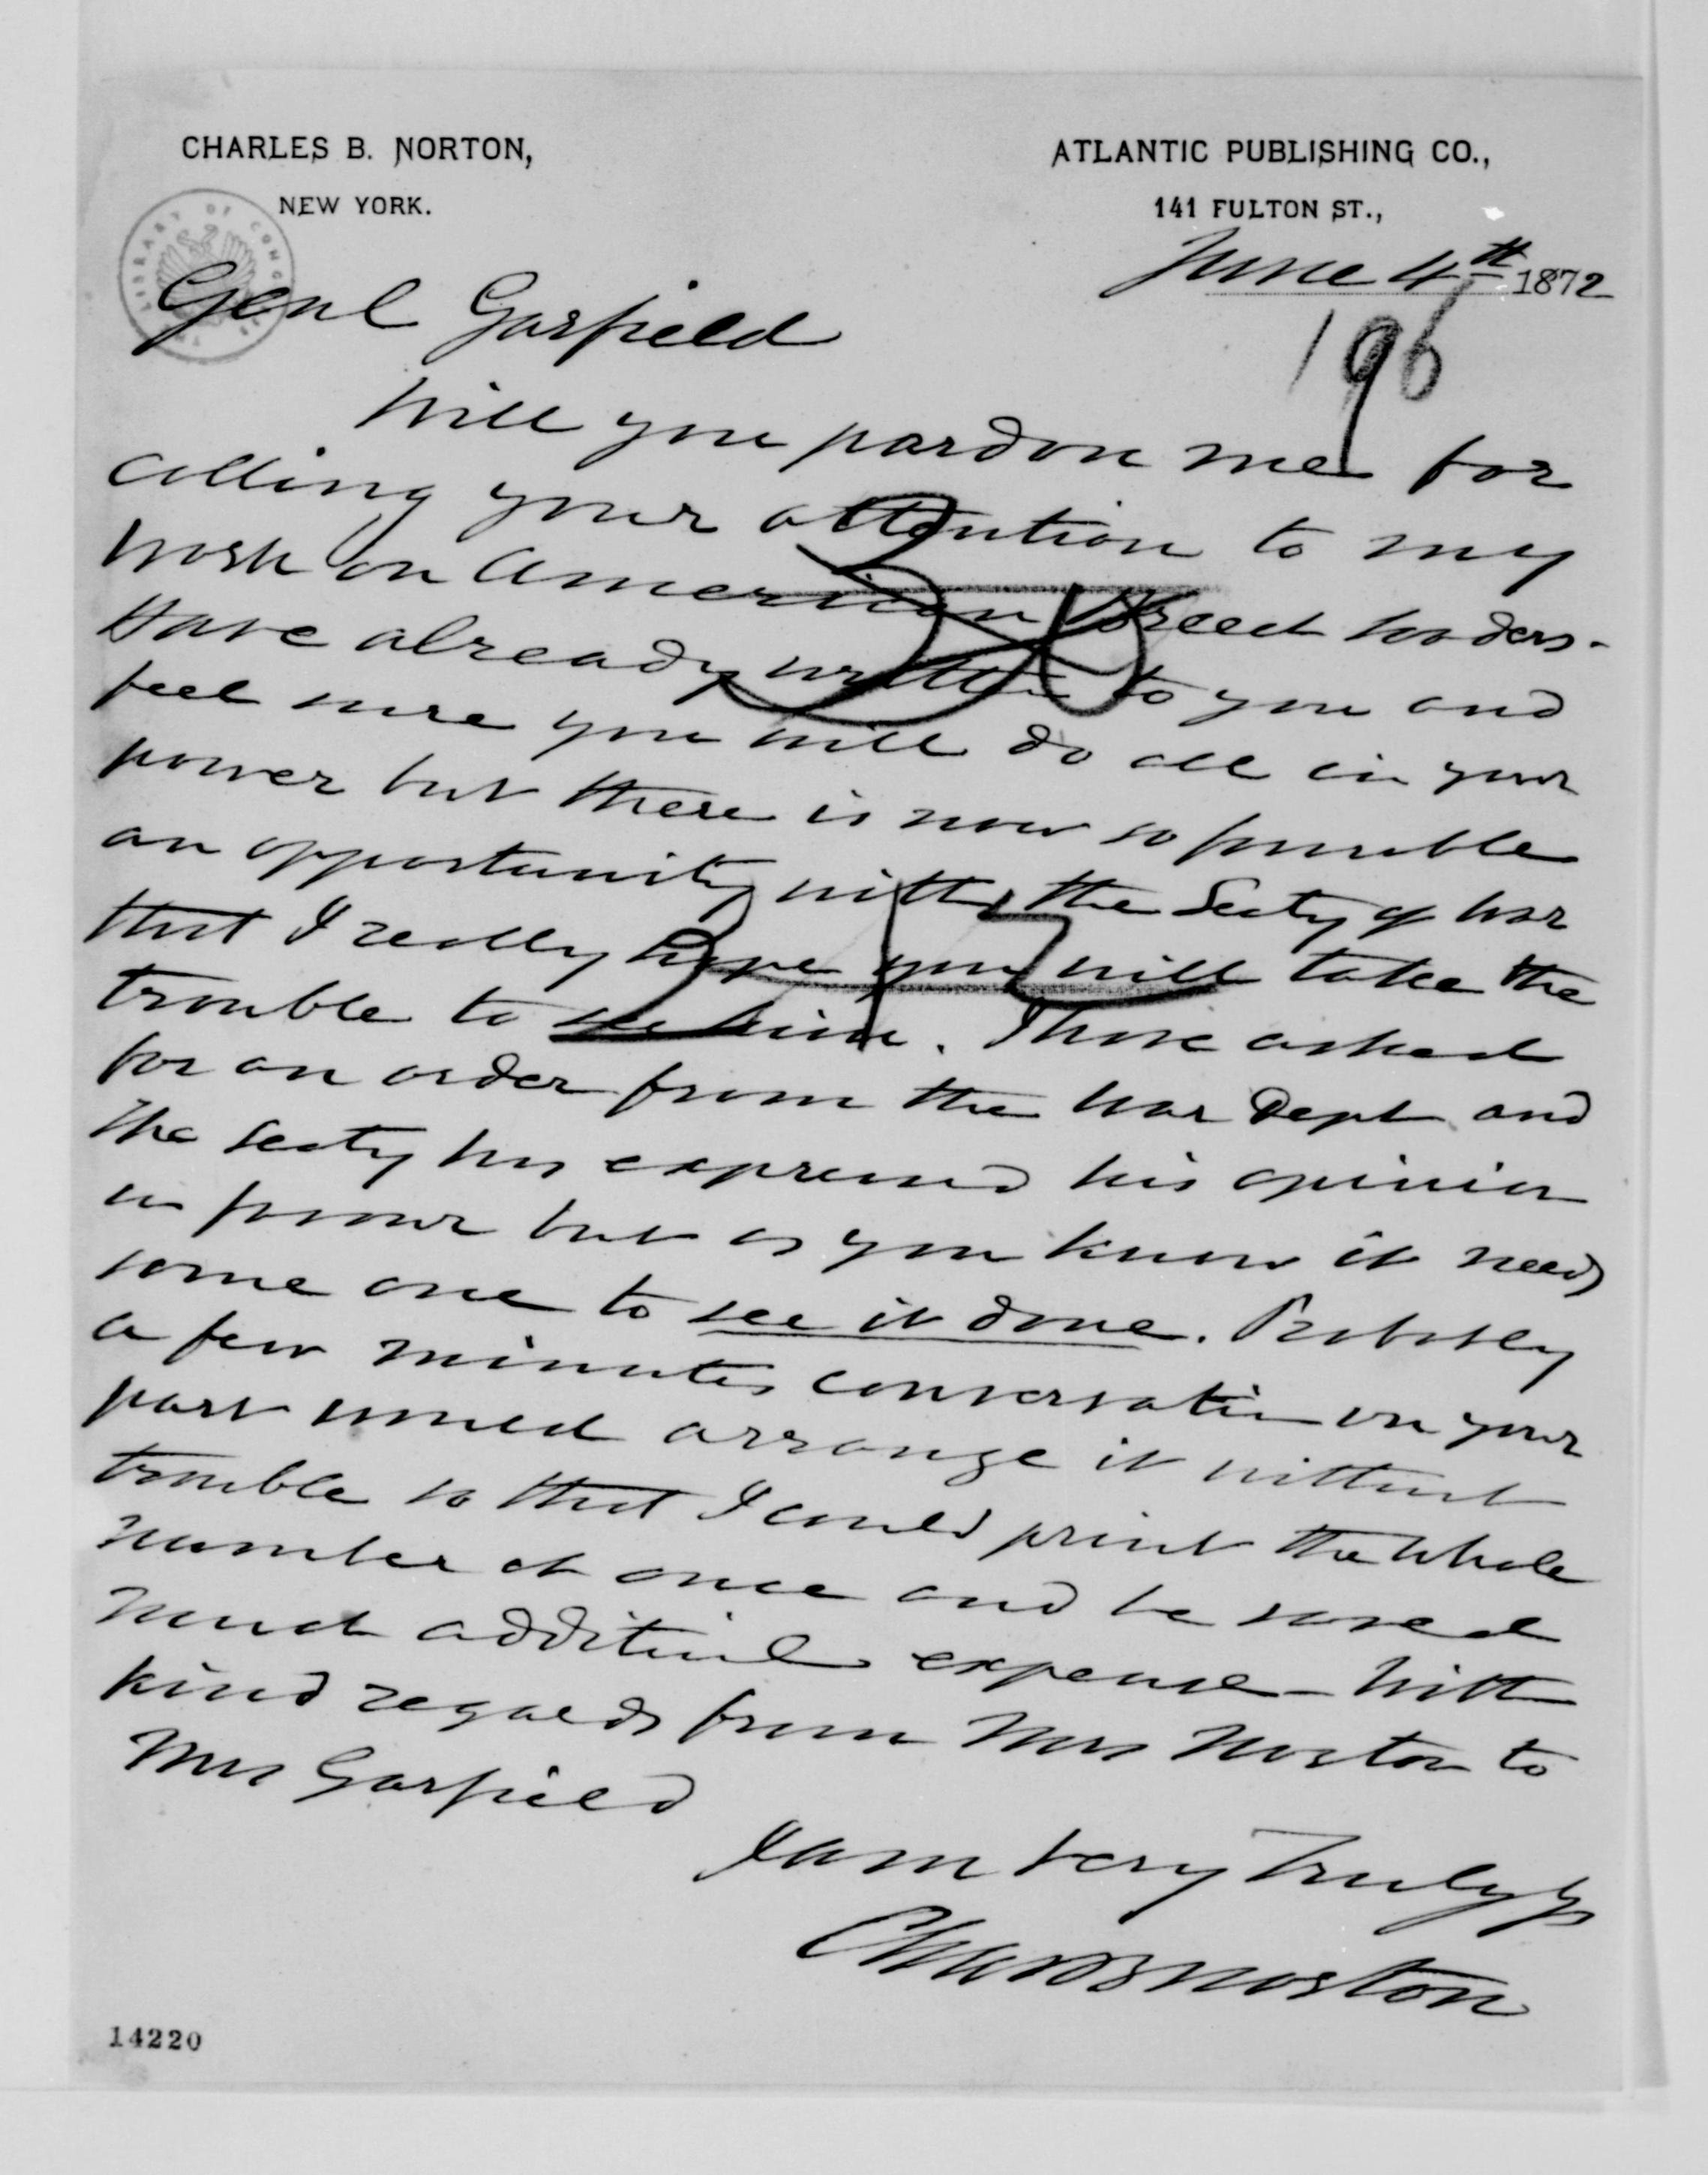 CHARLES B. NORTON,
NEW YORK.
ATLANTIC PUBLISHING CO.,
141 FULTON ST.,
LIBRARY OF CONGRESS
June 4th 1872
196
Genl Garfield
Will you pardon me for
calling your attention to my
work on American Breech loaders.
Have already written to you and
feel sure you will do all in your
power but there is now so favorable
an opportunity with the Secty of War
that I really hope you will take the
trouble to see him. I have asked
for an order from the War Dept and
the Secty has expressed his opinion
in favour but as you know it needs
some one to see it done. Probably
a few minutes conversation on your
part would arrange it without
trouble so that I could print the whole
number at once and be saved
much additional expense – With
kind regards from Mrs Norton to
Mrs Garfield
I am very truly yrs
Chas B Norton
14220